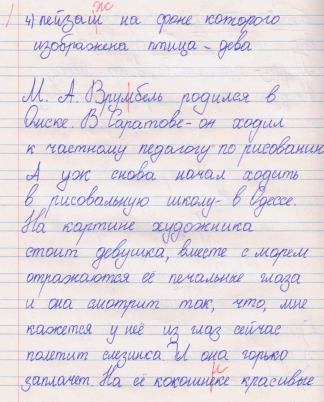 4) пейзаш ж на фоне которого
изображена птица - дева
М. А. Врумбель родился в
Омске. В Саратове - он ходил
к частному педагогу по рисованию
А уж снова начал ходить
в рисовальную школу - в Одессе.
На картине художника
стоит девушка, вместе с морем
отражаются её печальные глаза
и она смотрит так, что, мне
кажется у неё из глаз сейчас
полетит слезинка И она горько
заплачет. На её кокошнеке и красивые